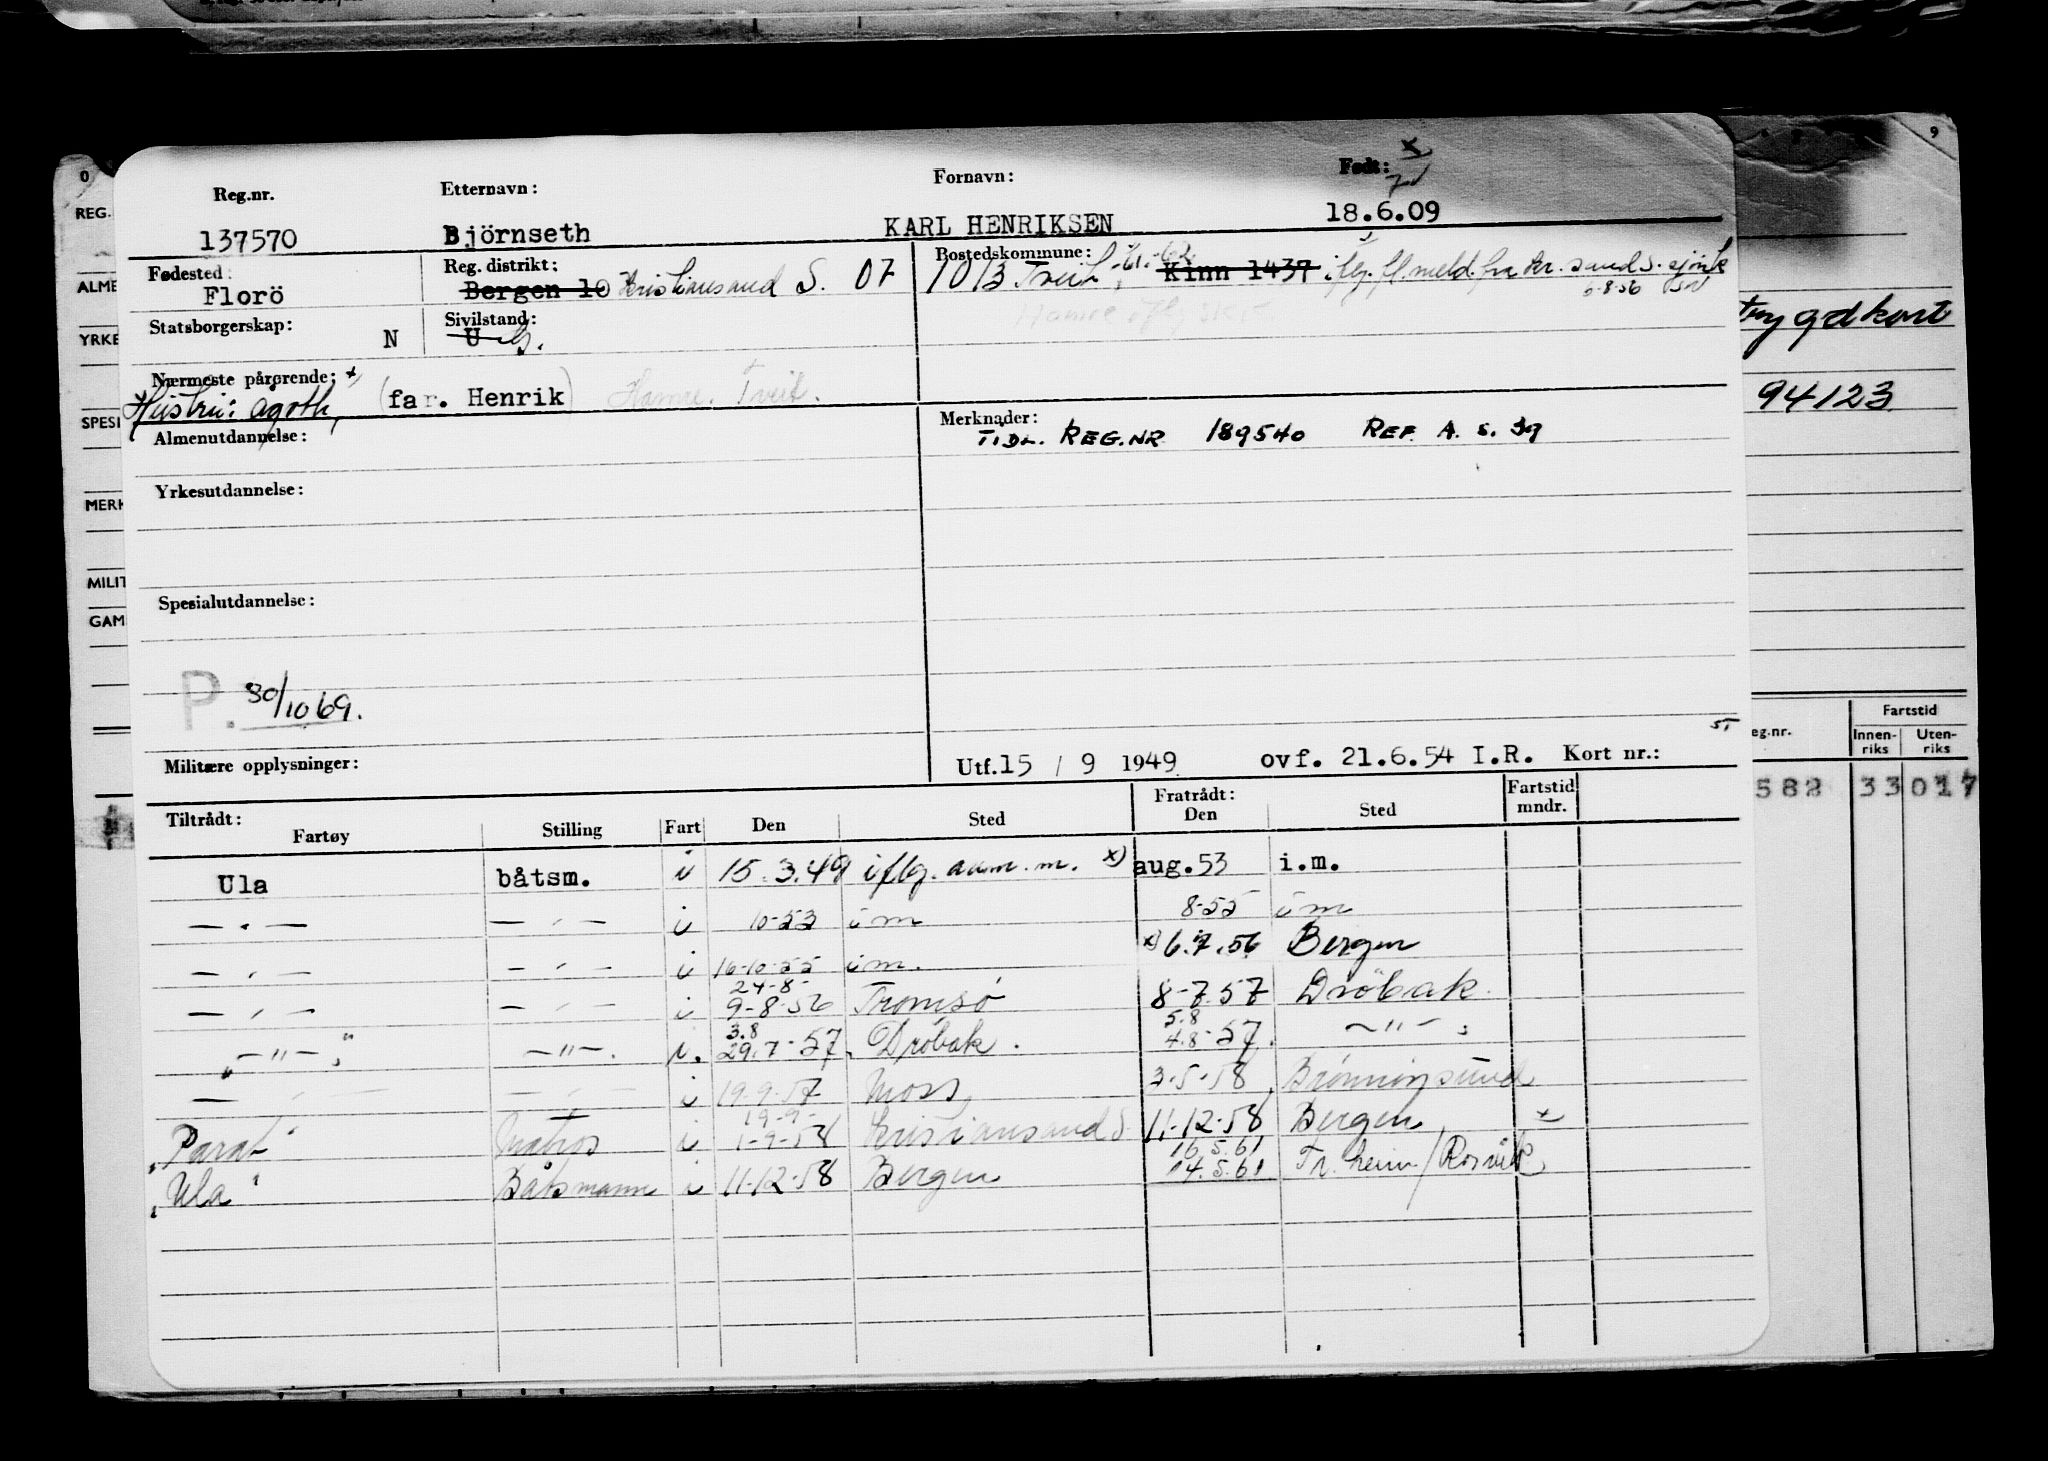 Reg.nr. Etternavn: Fornavn: Født:
137570 Björnseth KARL HENRIKSEN 18.6.09
Fødested: Reg. distrikt: Bostedskommune:
Florö Bergen 10 Kristiansand S. 07 1013 Tveit, Kinn 1437 iflg. fl.meld. fra Kr. sand S. sjönk
6-8-56
Statsborgerskap: N Sivilstand: U G.
Hamre iflg
Nærmeste pårørende: x)
Hustru: Agoth, (far. Henrik) Hamre. Tveit.
Almenutdannelse: Merknader:
TIDL. REG.NR 189540 REF. A. S. 39
Yrkesutdannelse:
Spesialutdannelse:
P. 30/10 69.
Militære opplysninger: Utf. 15 / 9 1949 ovf. 21.6.54 I.R. Kort nr.:
Tiltrådt: Fratrådt: Fartstid
Fartøy Stilling Fart Den Sted Den Sted mndr.
Ula båtsm. i 15.3.49 iflg. anm. m. x) aug.53 i.m.
— " — — " — i 10-53 i m 8-55 i m
— " — — " — i 16-10-55 i m. x) 6.7.56 Bergen
24-8-
— " — — " — i 9-8-56 Tromsø 8-7-57 Drøbak.
3.8 5.8
— " — — " — i. 29.7-57. Drøbak. 4.8-57. — " —
— " — — " — i 19-9-57 Moss, 3-5-58 Brønnøysund
19-9-
"Parat" Matros i 1-9-58 Kristiansand S. 11-12-58 Bergen
16.5.61
"Ula" Båtsmann i 11-12-58 Bergen 14.5.61 Tr.heim/Rosvik
0
REG.
ALME
YRKE
SPESI
MERK
MILIT
GAM
9
Trygdkort
94123
eg.nr. Fartstid
Innen-riks Uten-riks
582 33 017